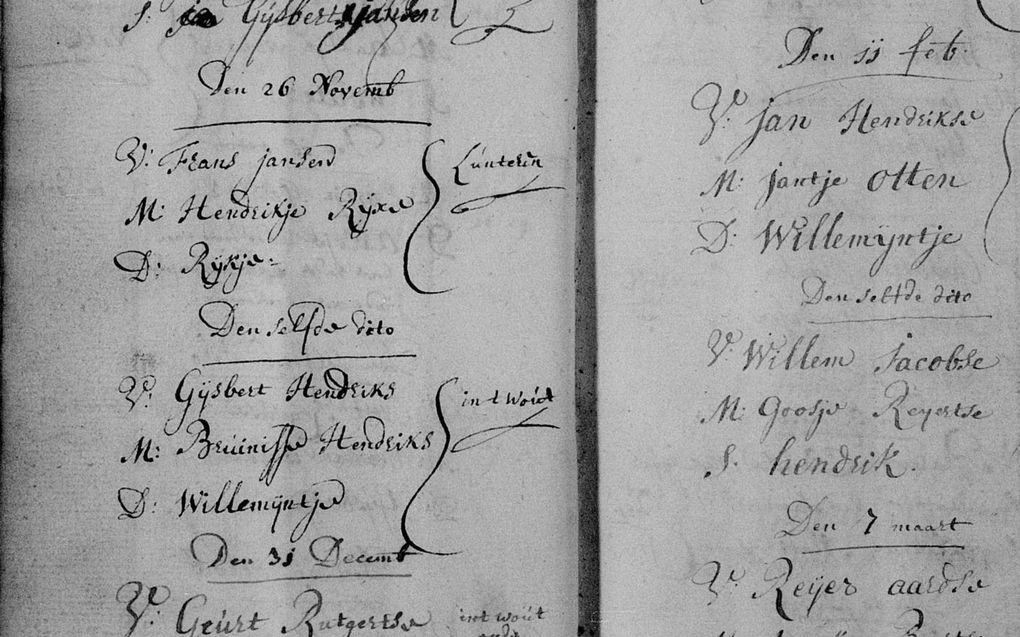 S: Gijsbert jansen
Den 26 Novemb
V: Frans jansen
Lunteren
M: Hendrikje Rijxe
D: Rijkje:
Den selfde dito
V: Gijsbert Hendriks
in t wout
M: Bruinisje Hendriks
D: Willemijntje
Den 31 Decemb
V: Geurt Rutgertse
int wout
Den 11 feb:
V: jan Hendrikse
M: jantje Otten
D: Willemijntje
Den selfde dito
V: Willem Jacobse
M: Goosje Reyertse
S: hendrik.
Den 7 maart
V: Reijer aardse